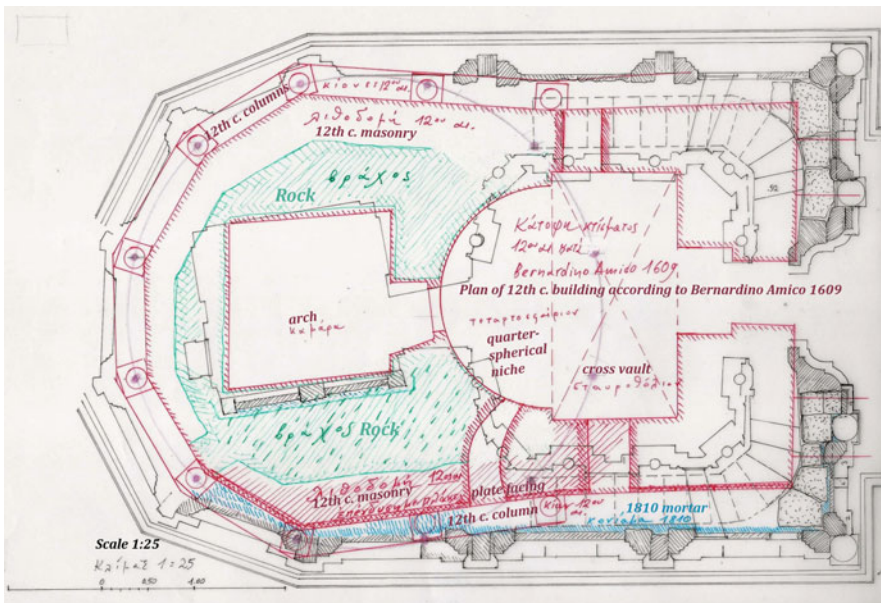 12th c. columns
κίονες 12ου αι.
λιθοδομή 12ου αι.
12th c. masonry
βράχος
Rock
Κάτοψη κτίσματος
12ου αι. κατά
Bernardino Amico 1609
Plan of 12th c. building according to Bernardino Amico 1609
arch
καμάρα
τεταρτοσφαίριον
quarter-
spherical
niche
cross vault
σταυροθόλιον
βράχος Rock
λιθοδομή 12ου αι.
12th c. masonry
plate facing
12th c. column
κίων 12ου αι.
1810 mortar
κονίαμα 1810
Scale 1:25
Κλίμαξ 1:25
0 0,50 1,00